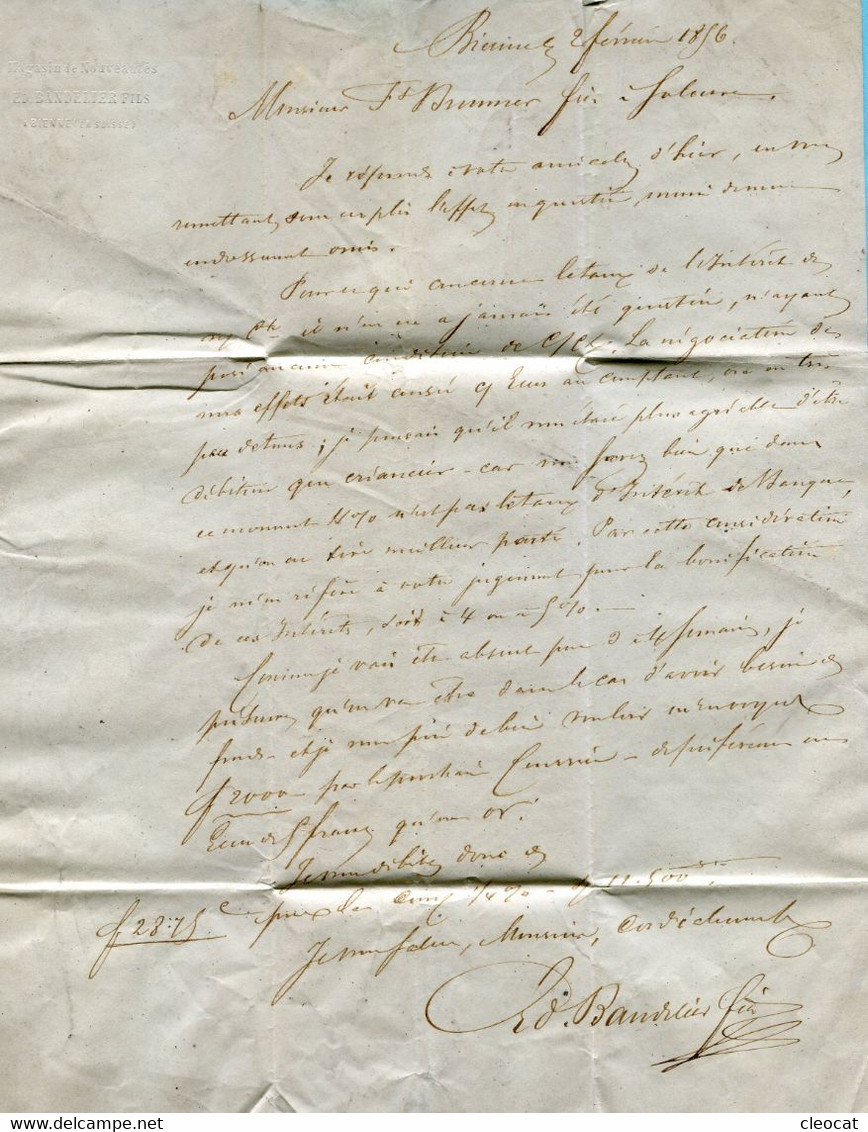 Bienne le 2 février 1856.
Magasin de Nouveautés
ED. BANDELIER FILS
BIENNE (EN SUISSE)
Monsieur Fs Brunner fils à Soleure.
Je réponds à votre amicale d'hier, en vous
remettant sous ce pli l'effet en question, muni de mon
endossement omis.
Pour ce qui concerne le taux de l'Intérêt de
m/ Ct. il n'en a jamais été question, n'ayant
posé aucune condition de C/Ct. La négociation de
mes effets était censée c/ Ecus au comptant, ou on très
peu de tems; je pensais qu'il vous était plus agréable d'être
débiteur que créancier - car vous savez bien que dans
ce moment 4% n'est pas le taux d'Intérêt de Banque,
et qu'on en tire meilleur parti. Par cette considération
je m'en réfère à votre jugement pour la bonification
de ces Intérêts, soit à 4 ou à 5%.-
Comme je vais être absent pour 3 à 4 semaines, je
présume qu'on va être dans le cas d'avoir besoin de
fonds - et je vous prie de bien vouloir m'envoyer
f 2000 par le prochain Courrier - de préférence en
Ecus de 5 francs qu'en or.
Je vous débite donc de
f 28.75 c pour les cinq 1/4% - f 11.500
Je vous salue, Monsieur, cordialement
Ed. Bandelier fils
cleocat